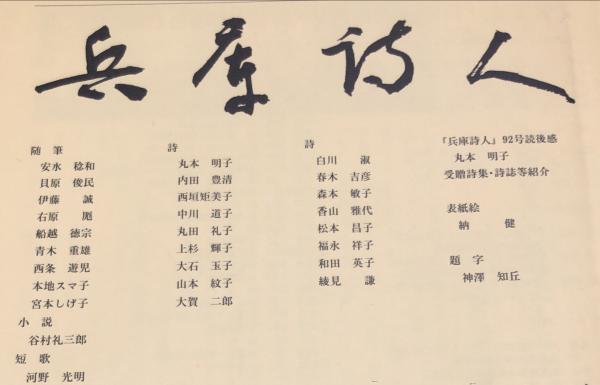 兵庫詩人
随筆
安水 稔和
貝原 俊民
伊藤 誠
右原 厖
船越 徳宗
青木 重雄
西条 遊児
本地スマ子
宮本しげ子
小説
谷村礼三郎
短歌
河野 光明
詩
丸本 明子
内田 豊清
西垣矩美子
中川 道子
丸田 礼子
上杉 輝子
大石 玉子
山本 紋子
大賀 二郎
詩
白川 淑
春木 吉彦
森本 敏子
香山 雅代
松本 昌子
福永 祥子
和田 英子
綾見 謙
『兵庫詩人』92号読後感
丸本 明子
受贈詩集・詩誌等紹介
表紙絵
納 健
題字
神澤 知丘